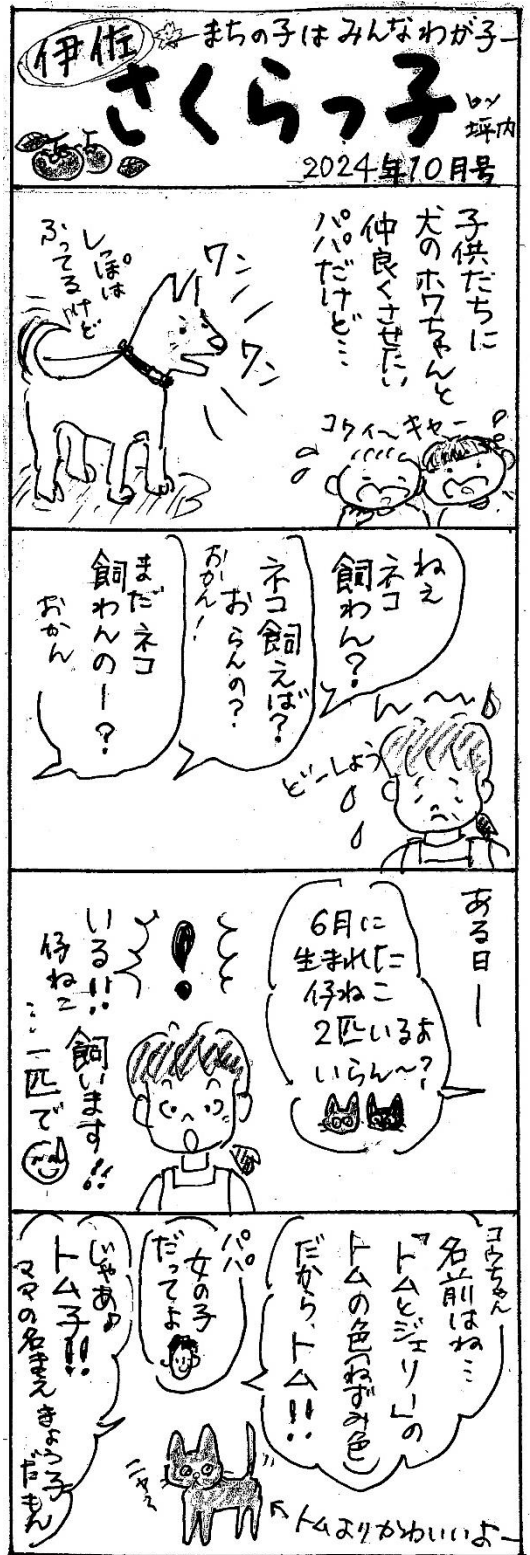 伊佐
まちの子はみんなわが子
さくらっ子
by
坪内
2024年10月号
子供たちに
犬のホワちゃんと
仲良くさせたい
パパだけど…
ワン
ワン
しっぽは
ふってるけど
コワィ〜
キャー
ねえ
ネコ
飼わん?
ネコ飼えば?
おらんの?
おかん!
まだネコ
飼わんのー?
おかん
ん〜
どーしよう
ある日ー
6月に
生まれた
仔ねこ
2匹いるよ
いらん〜?
!
いる!!
仔ねこ
飼います!!
…一匹で
コウちゃん
名前はね…
「トムとジェリー」の
トムの色(ねずみ色
だから、トム!!
パパ
女の子
だってよ
じゃあ♪
トム子!!
ママの名まえきょう子
だもん
ニャ〜
←トムよりかわいいよー